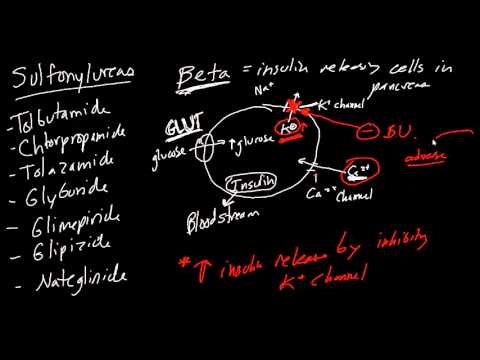 Sulfonylureas
- Tolbutamide
- Chlorpropamide
- Tolazamide
- Glyburide
- Glimepiride
- Glipizide
- Nateglinide
Beta = insulin releasing cells in pancreas
Na+
K+ channel
GLUT
glucose
↑ glucose
K⊕
⊖ SU.
adverse
Insulin
Ca2+
Ca2+ channel
Bloodstream
* ↑ insulin release by inhibiting
K+ channel